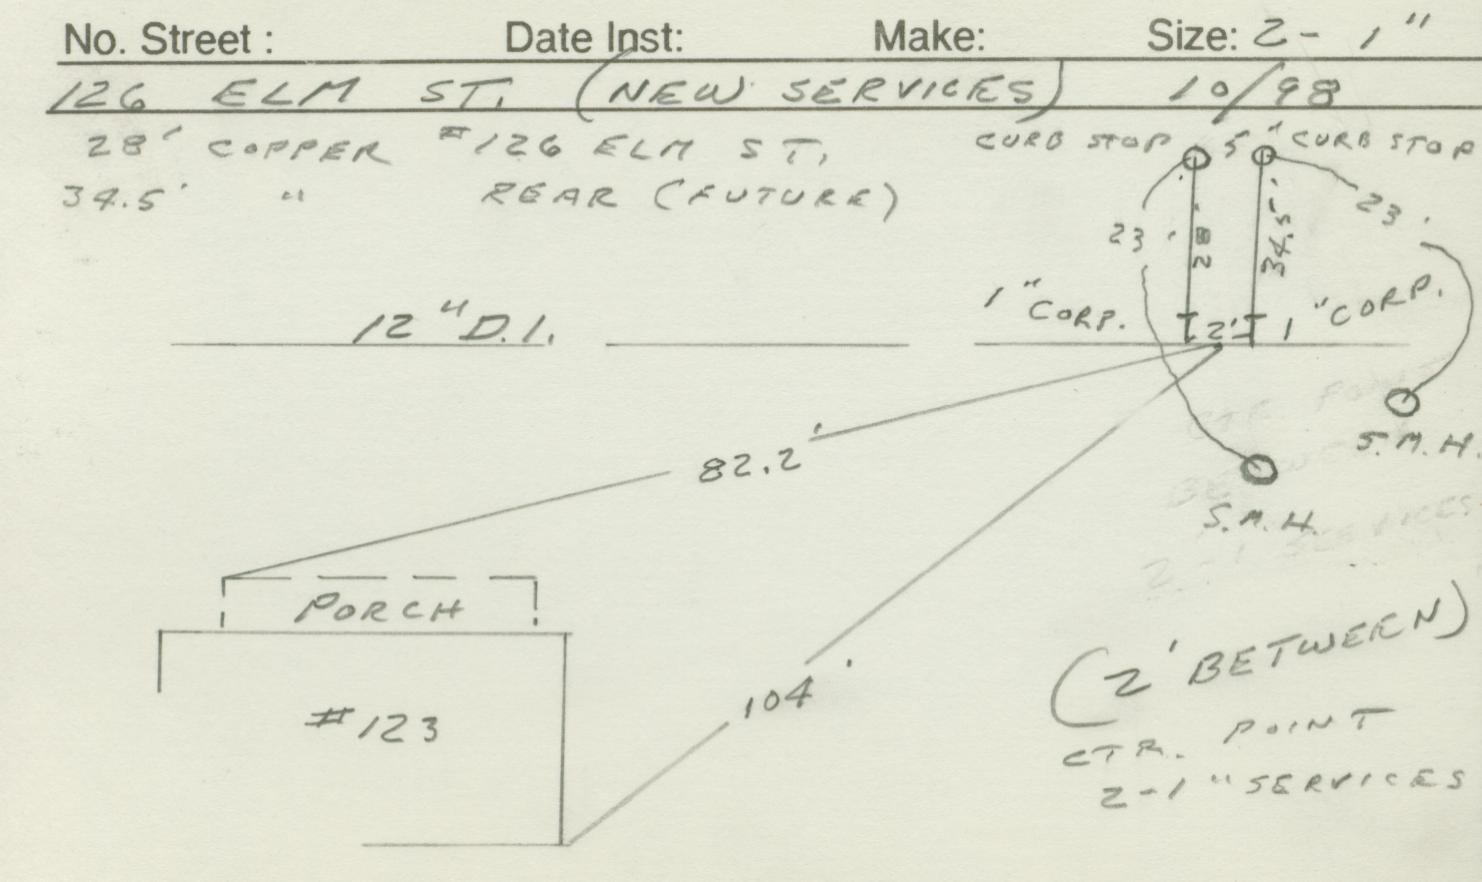 No. Street : Date Inst: Make: Size: 2 - 1"
126 ELM ST. (NEW SERVICES) 10/98
28' COPPER #126 ELM ST.
34.5' " REAR (FUTURE)
CURB STOP 5" CURB STOP
23' 28' 34.5' 23'
12" D.I.
1" CORP. 2' 1" CORP.
82.2'
S.M.H.
S.M.H.
CTR POINT
BETWEEN
2-1" SERVICES
PORCH
#123
104'
(2' BETWEEN)
CTR. POINT
2-1" SERVICES